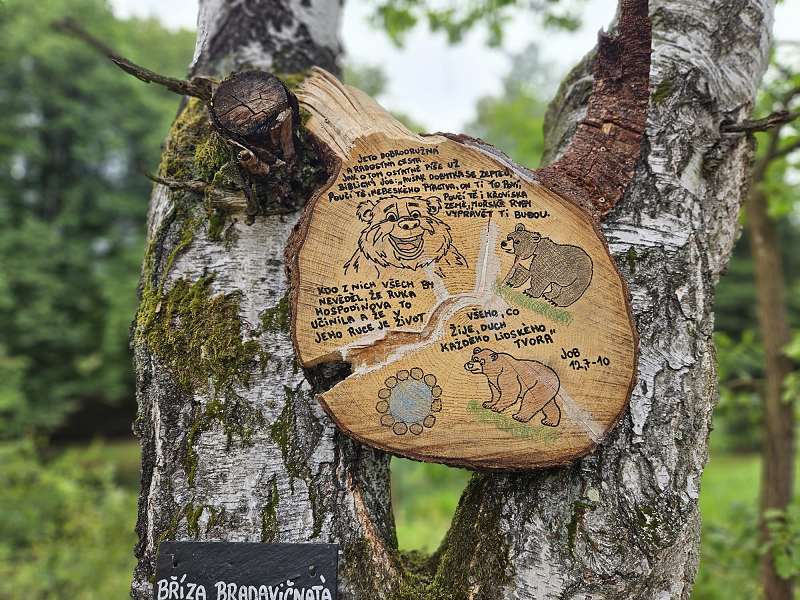 JETO DOBRODRUŽNÁ
A RADOSTNÁ CESTA
JAK O TOM OSTATNĚ PÍŠE UŽ
BIBLICKÝ JOB: „INSAK DOBYTKA SE ZEPTEJ,
POUČÍ TĚ, NEBESKÉHO PTACTVA, ON TI TO POVÍ.
POUČÍ TĚ I KŘOVISKA
ZEMĚ, MOŘSKÉ RYBY
VYPRÁVĚT TI BUDOU.
KDO Z NICH VŠECH BY
NEVĚDĚL, ŽE RUKA
HOSPODINOVA TO
UČINILA A ŽE V
JEHO RUCE JE ŽIVOT
VŠEHO, CO
ŽIJE, DUCH
KAŽDÉHO LIDSKÉHO
TVORA"
JOB
12,7-10
BŘÍZA BRADAVIČNATÁ